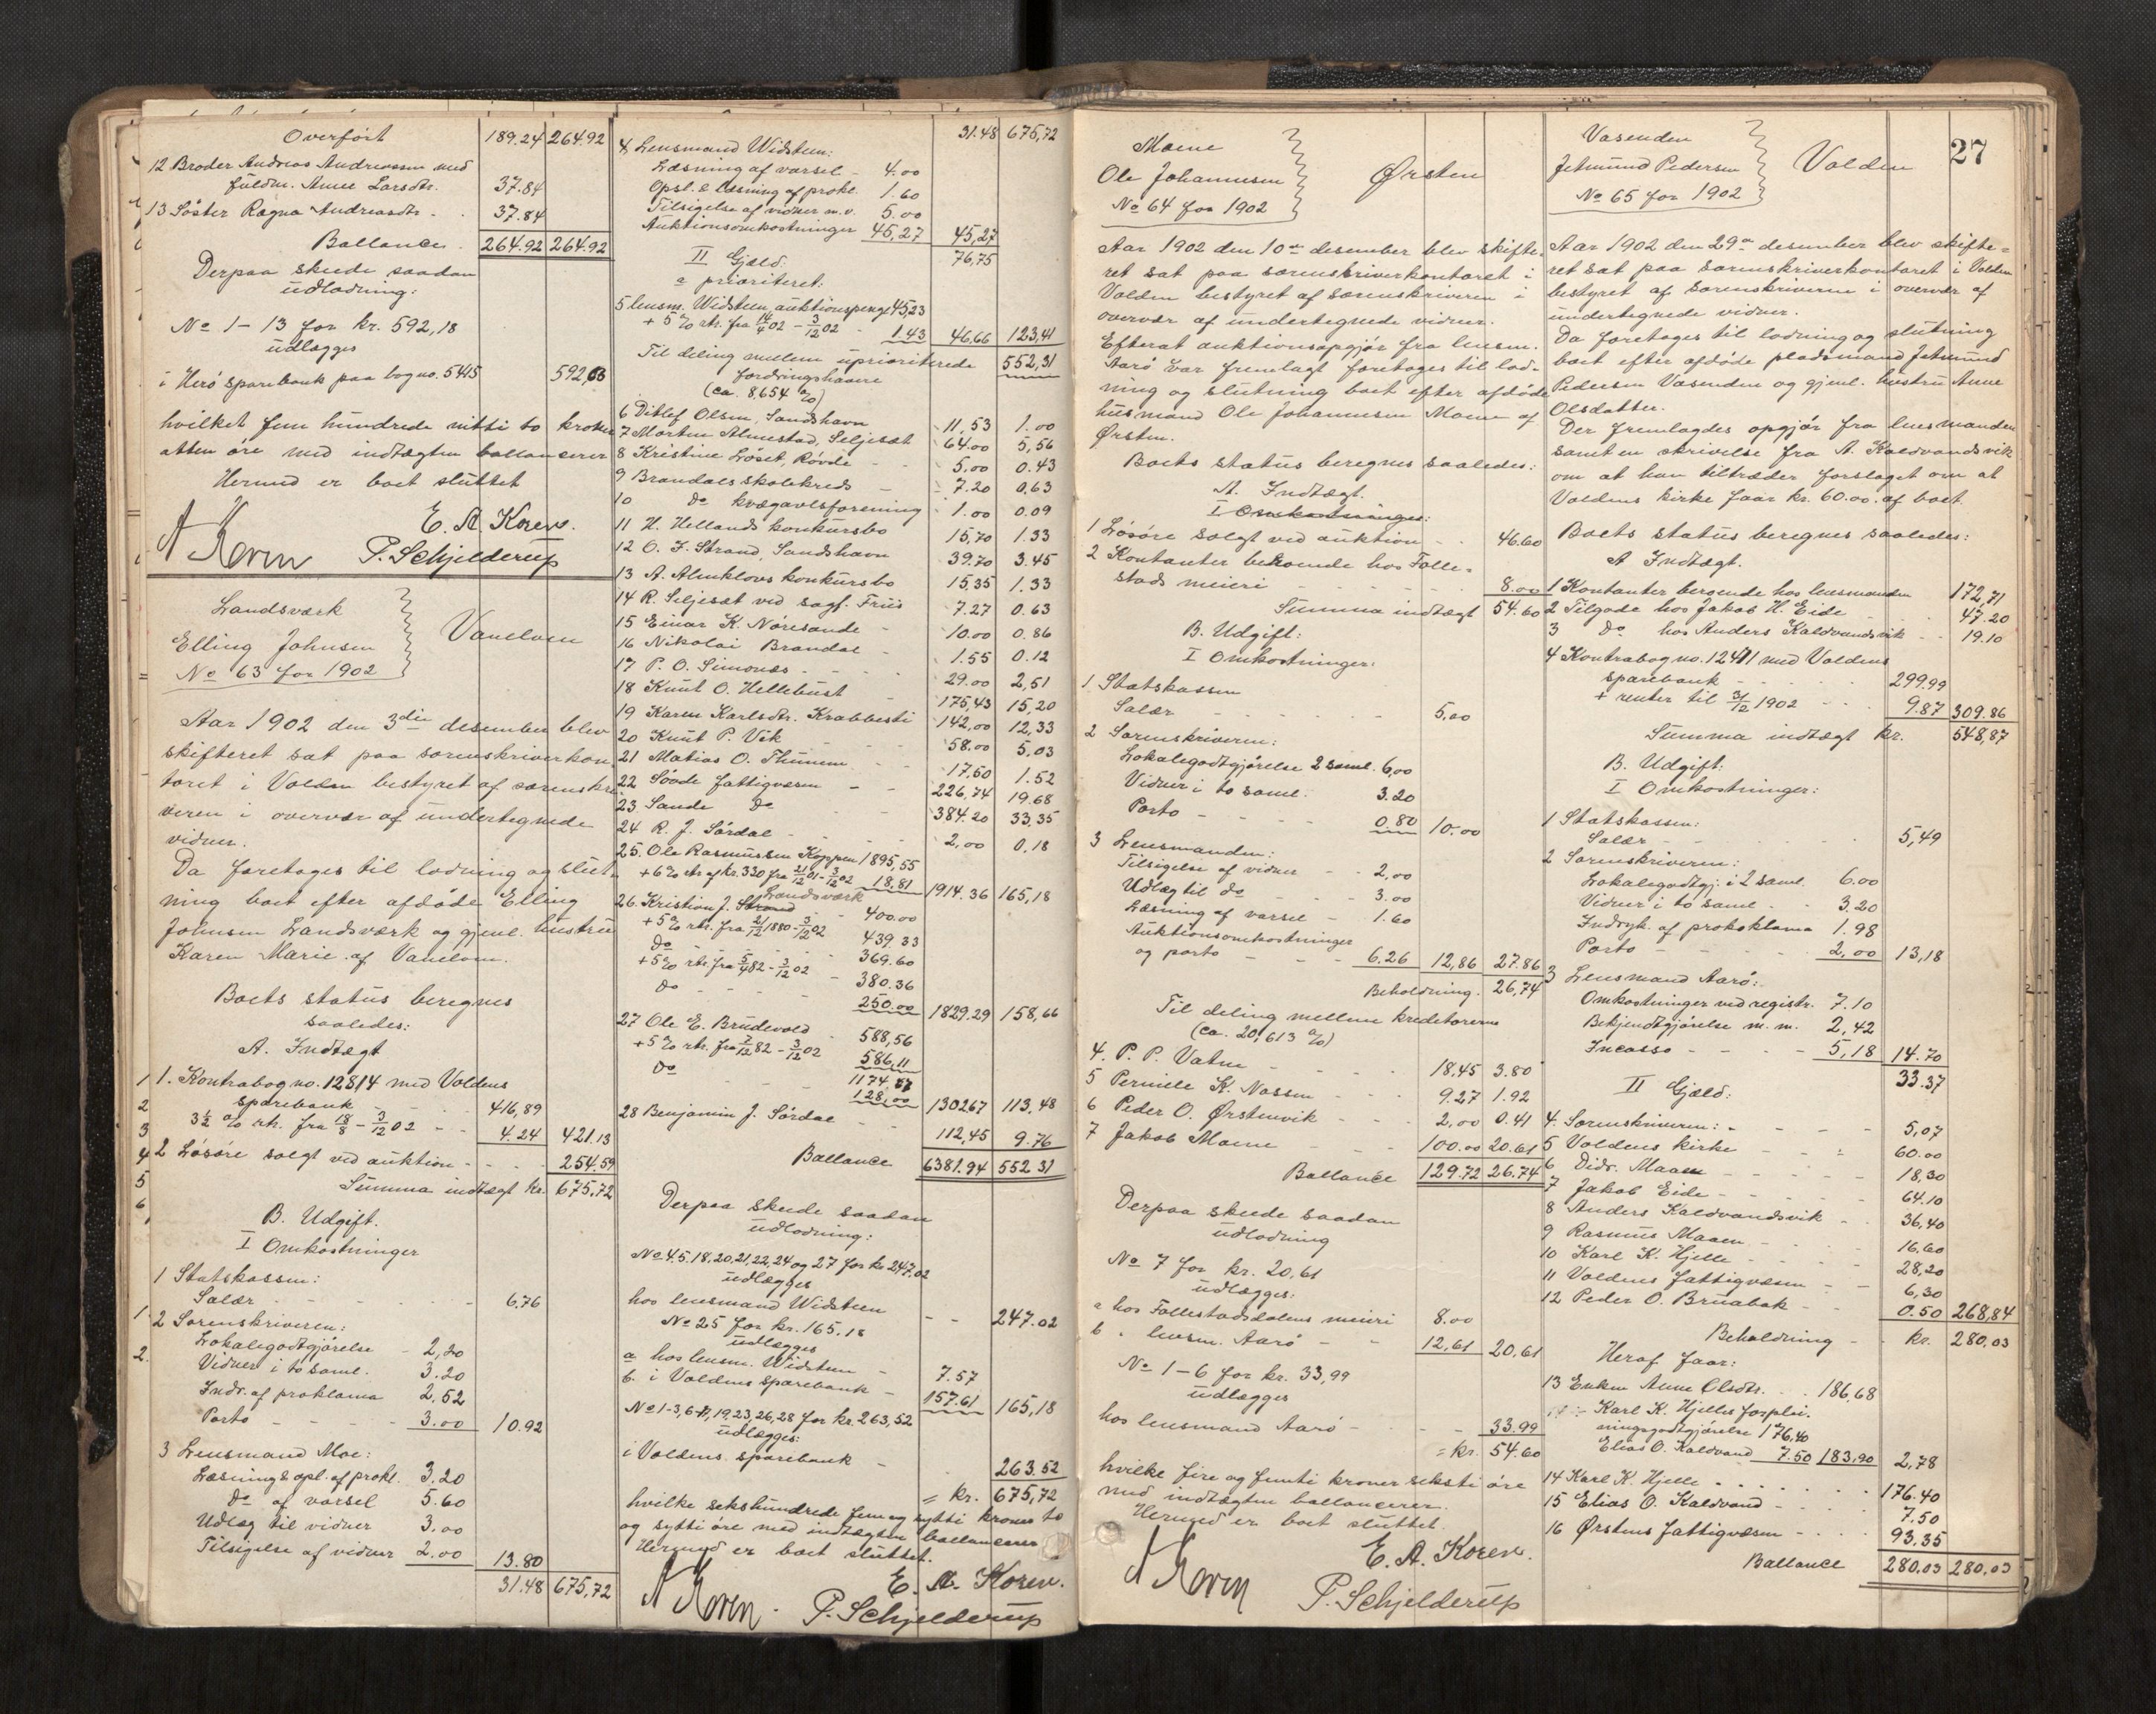 Overført 189.24 264.92
12 Broder Andreas Andreassen med
fuldm. Anne Larsdtr. 37.84
13 Søster Ragna Andreasdtr - . 37.84
Ballance . 264.92 264.92
Derpaa skede saadan
udlodning:
No 1 - 13 for kr. 592,18
udlægges
i Herø sparebank paa bog no. 5445 592,18
hvilket fem hundrede nitti to kroner
atten øre med indtægten ballancerer
Hermed er boet sluttet
E. A. Koren.
A Koren P. Schjelderup
Landsværk
Elling Johnsen Vanelven
No 63 for 1902
Aar 1902 den 3die desember blev
skifteret sat paa sorenskriverkon-
toret i Volden bestyret af sorenskri-
veren i overvær af undertegnede
vidner.
Da foretages til lodning og slut-
ning boet efter afdøde Elling
Johnsen Landsværk og gjenl. hustru
Karen Marie af Vanelven.
Boets status beregnes
saaledes:
A. Indtægt
1. Kontrabog no. 12814 med Voldens
sparebank 416,89
3½ % rtr. fra 18/8 - 3/12 02 - - 4.24 421.13
2 Løsøre solgt ved auktion - - - - 254.59
Summa indtægt kr. 675,72
B. Udgift.
I Omkostninger
1 Statskassen:
Salær - - - - - - 6.76
2 Sorenskriveren:
Lokalegodtgjørelse - 2,20
Vidner i to saml. 3.20
Indr. af proklama 2,52
Porto - - - - - 3.00 10.92
3 Lensmand Moe:
Læsning & opl. af prokl. 3.20
do af varsel 5.60
Udlæg til vidner 3.00
Tilsigelse af vidner 2.00 13.80
31.48 675,72
31.48 675,72
4 Lensmand Widsteen:
Læsning af varsel - 4.00
Opsl. & læsning af prokl. 1.60
Tilsigelse af vidner m.v. 5.00
Auktionsomkostninger 45,27 45,27
76,75
II Gjæld.
a prioriteret:
5 lensm. Widsteen, auktionspenge 45,23
+ 5 % rtr. fra 14/4 02 - 3/12 02 1.43 46,66 123,41
Til deling mellem uprioriterede 552,31
fordringshavere
(ca. 8,654 %)
6 Ditlef Olsen, Sandshavn 11,53 1.00
7 Morten Almestad, Seljesæt 64.00 5,56
8 Kristine Løset, Rovde - - 5,00 0.43
9 Brandals skolekreds - 7.20 0,63
10 do kvægavlsforening 1.00 0.09
11 H. Hellands konkursbo 15,70 1.33
12 O. F. Strand, Sandshavn 39.70 3.45
13 A. Almklovs konkursbo 15,35 1.33
14 R. Seljesæt ved sagf. Friis 7.27 0.63
15 Einar K. Nøresande - 10.00 0.86
16 Nikolai Brandal - 1.55 0.12
17 P. O. Simonæs - - - 29.00 2,51
18 Knut O. Hellebust - 175,43 15,20
19 Karen Karlsdtr. Krabbesti 142,00 12,33
20 Knut P. Vik - - - 58.00 5,03
21 Matias O. Thunem - - 17,60 1.52
22 Søvde fattigvæsen - - 226,74 19.68
23 Sande do - - 384.20 33,35
24 R. J. Sørdal - - - 2,00 0,18
25. Ole Rasmussen Koppen 1895,55
+ 6% rtr af kr. 320 fra 21/12 01 - 3/12 02 18.81 1914.36 165,18
26. Kristian J. Landsværk 400.00
+ 5 % rtr. fra 21/12 1880 - 3/12 02 439.33
do - - - 369.60
+ 5 % rtr. fra 5/4 82 - 3/12 02 - 380.36
do - - - - 250.00 1829.29 158,66
27 Ole E. Brudevold - 588,56
+ 5 % rtr. fra 2/12 82 - 3/12 02 586,11
1174,67
do - - - 128,00 1302.67 113,48
28 Benjamin J. Sørdal - - 112,45 9.76
Ballance 6381.94 552 31
Derpaa skede saadan
udlodning:
No 4.5.18,20,21,22,24 og 27 for kr 247,02
udlægges
hos lensmand Widsteen - - 247.02
No 25 for kr. 165.18
udlægges
a hos lensm. Widsteen - 7.57
b. i Voldens sparebank - 157.61 165,18
No 1-3, 6-17, 19,23,26,28 for kr. 263,52
udlægges:
i Voldens sparebank - - 263.52
= kr. 675,72
hvilke sekshundrede fem og sytti kroner to
og sytti øre med indtægten ballancerer
Hermed er boet sluttet.
E. A. Koren.
A Koren. P. Schjelderup
27
Moene
Ole Johannesen Ørsten
No 64 for 1902
Aar 1902 den 10de desember blev skifte-
ret sat paa sorenskriverkontoret i
Volden bestyret af sorenskriveren i
overvær af undertegnede vidner.
Efterat auktionsopgjør fra lensm.
Aarø var fremlagt foretages til lod-
ning og slutning boet efter afdøde
husmand Ole Johannesen Moene af
Ørsten.
Boets status beregnes saaledes:
A. Indtægt.
I Omkostninger:
1 Løsøre solgt ved auktion - - 46.60
2 Kontanter beroende hos Folle-
stads meieri - - - - 8.00
Summa indtægt 54.60
B. Udgift:
I Omkostninger:
1 Statskassen
Salær - - - - 5,00
2 Sorenskriveren:
Lokalegodtgjørelse 2 saml. 6,00
Vidner i to saml. 3.20
Porto - - - - 0.80 10.00
3 Lensmanden:
Tilsigelse af vidner - - 2,00
Udlæg til do - - 3.00
Læsning af varsel - 1.60
Auktionsomkostninger
og porto - - - 6.26 12,86 27.86
Beholdning. 26,74
Til deling mellem kreditorerne
(ca. 20,613 %)
4. P. P. Vatne - - - 18,45 3.80
5 Pernille K. Nossen - - - 9.27 1.92
6 Peder O. Ørstenvik - - - 2,00 0.41
7 Jakob Moene - - 100.00 20.61
Ballance 129.72 26.74
Derpaa skede saadan
udlodning
No 7 for kr. 20,61
udlægges:
a hos Follestadsdalens meieri 8.00
b " lensm. Aarø - - 12,61 20,61
No 1 - 6 for kr. 33,99
udlægges
hos lensmand Aarø - - - 33.99
= kr. 54.60
hvilke fire og femti kroner seksti øre
med indtægten ballancerer.
Hermed er boet sluttet.
E. A. Koren.
A Koren P. Schjelderup
Vasenden
Jetmund Pedersen Volden
No 65 for 1902
Aar 1902 den 29de desember blev skifte-
ret sat paa sorenskriverkontoret i Volden
bestyret af sorenskriveren i overvær af
undertegnede vidner.
Da foretages til lodning og slutning
boet efter afdøde pladsmand Jetmund
Pedersen Vasenden og gjenl. hustru Anne
Olsdatter.
Der fremlagdes opgjør fra lensmanden
samt en skrivelse fra A. Kaldvandsvik
om at han tiltræder forslaget om at
Voldens kirke faar kr. 60.00. af boet
Boets status beregnes saaledes:
A Indtægt.
1 Kontanter beroende hos lensmanden 172,71
2 Tilgode hos Jakob H. Eide - - 47.20
3 do hos Anders Kaldvandsvik - - 19.10
4 Kontrabog no. 12411 med Voldens
sparebank - - - - - 299.99
+ renter til 31/12 1902 - - - 9.87 309.86
Summa indtægt kr. 548,87
B. Udgift:
I Omkostninger:
1 Statskassen:
Salær - - - - - 5,49
2 Sorenskriveren:
Lokalegodtgj. i 2 saml. 6.00
Vidner i to saml. - - 3.20
Indryk. af prokoklama 1.98
Porto - - - - - 2,00 13,18
3 Lensmand Aarø:
Omkostninger ved registr. 7.10
Bekjendtgjørelse m. m. 2,42
Incasso - - - - 5,18 14.70
33.37
II Gjæld:
4. Sorenskriveren: - - - - 5,07
5 Voldens kirke - - - 60.00
6 Didr. Maaen - - - - 18,30
7 Jakob Eide - - - - 64.10
8 Anders Kaldvandsvik - - 36,40
9 Rasmus Maaen - - - - 16,60
10 Karl K. Hjelle - - - - 28,20
11 Voldens fattigvæsen - - 6,30
12 Peder O. Bruabak - - - 0.50 268,84
Beholdning - - kr. 280,03
Heraf faar:
13 Enken Anne Olsdtr. - - 186,68
÷ Karl K. Hjelles forplei-
ningsgodtgjørelse 176,40
Elias O. Kaldvand 7.50 183,90 2,78
14 Karl K. Hjelle - - - - - 176.40
15 Elias O. Kaldvand - - - - 7.50
16 Ørstens fattigvæsen - - - - 93.35
Ballance 280.03 280.03